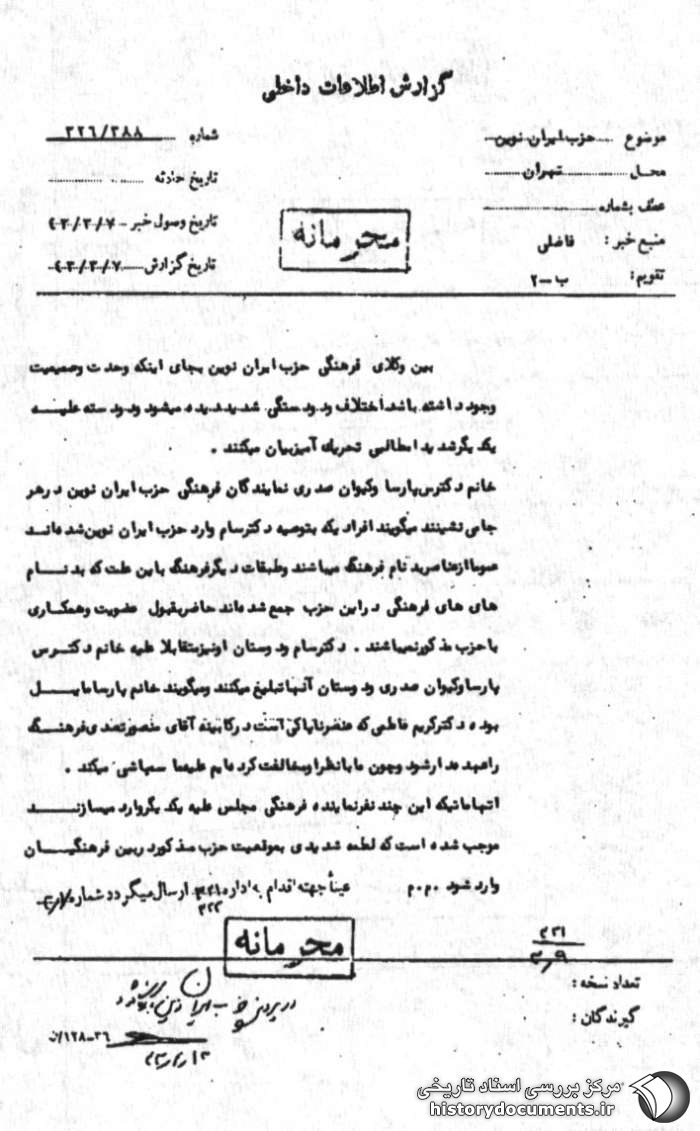 گزارش اطلاعات داخلی
موضوع حزب ایران نوین
شماره ۳۲۶/۳۸۸
محل تهران
تاریخ حادثه
عطف بشماره
تاریخ وصول خبر ۴۳/۳/۷
منبع خبر : فاضلی
محرمانه
تاریخ گزارش ۴۳/۳/۷
تقویم : ب-۲
بین وکلای فرهنگی حزب ایران نوین بجای اینکه وحدت وصمیمیت
وجود داشته باشد اختلاف ودودستگی شدید دیده میشود ودودسته علیه
یکدیگر شدیدا مطالبی تحریک آمیز بیان میکنند .
خانم دکتر س پارسا وکیوان صدری نمایندگان فرهنگی حزب ایران نوین در هر
جامی نشینند میگویند افرادیکه بتوصیه دکتر سام وارد حزب ایران نوین شده اند
عموما ازعناصر بدنام فرهنگ میباشند وطبقات دیگر فرهنگ باین علت که بد نام
های های فرهنگی در این حزب جمع شده اند حاضر بقبول عضویت وهمکاری
با حزب مذکور نمیباشند . دکتر سام ودوستان اونیز متقابلا علیه خانم دکتر س
پارسا وکیوان صدری ودوستان آنها تبلیغ میکنند ومیگویند خانم پارسا مایل
بوده دکتر کریم فاطمی که عنصر ناپاکی است در کابینه آقای منصور تصدی فرهنگ
را عهده دار شود وچون ما با نظر او مخالفت کرده ایم علیه ما سمپاشی میکند .
اتهاماتیکه این چند نفر نماینده فرهنگی مجلس علیه یکدیگر وارد میسازند
موجب شده است که لطمه شدیدی بموقعیت حزب مذکور در بین فرهنگیان
وارد شود .م.م عیناً جهته اقدام به اداره ارسال میگردد شماره
محرمانه
۳۲۱
تعداد نسخه :
گیرندگان :
در پرونده حزب ایران نوین
۳۶-۱۲۸/ن
مرکز بررسی اسناد تاریخی
historydocuments.ir